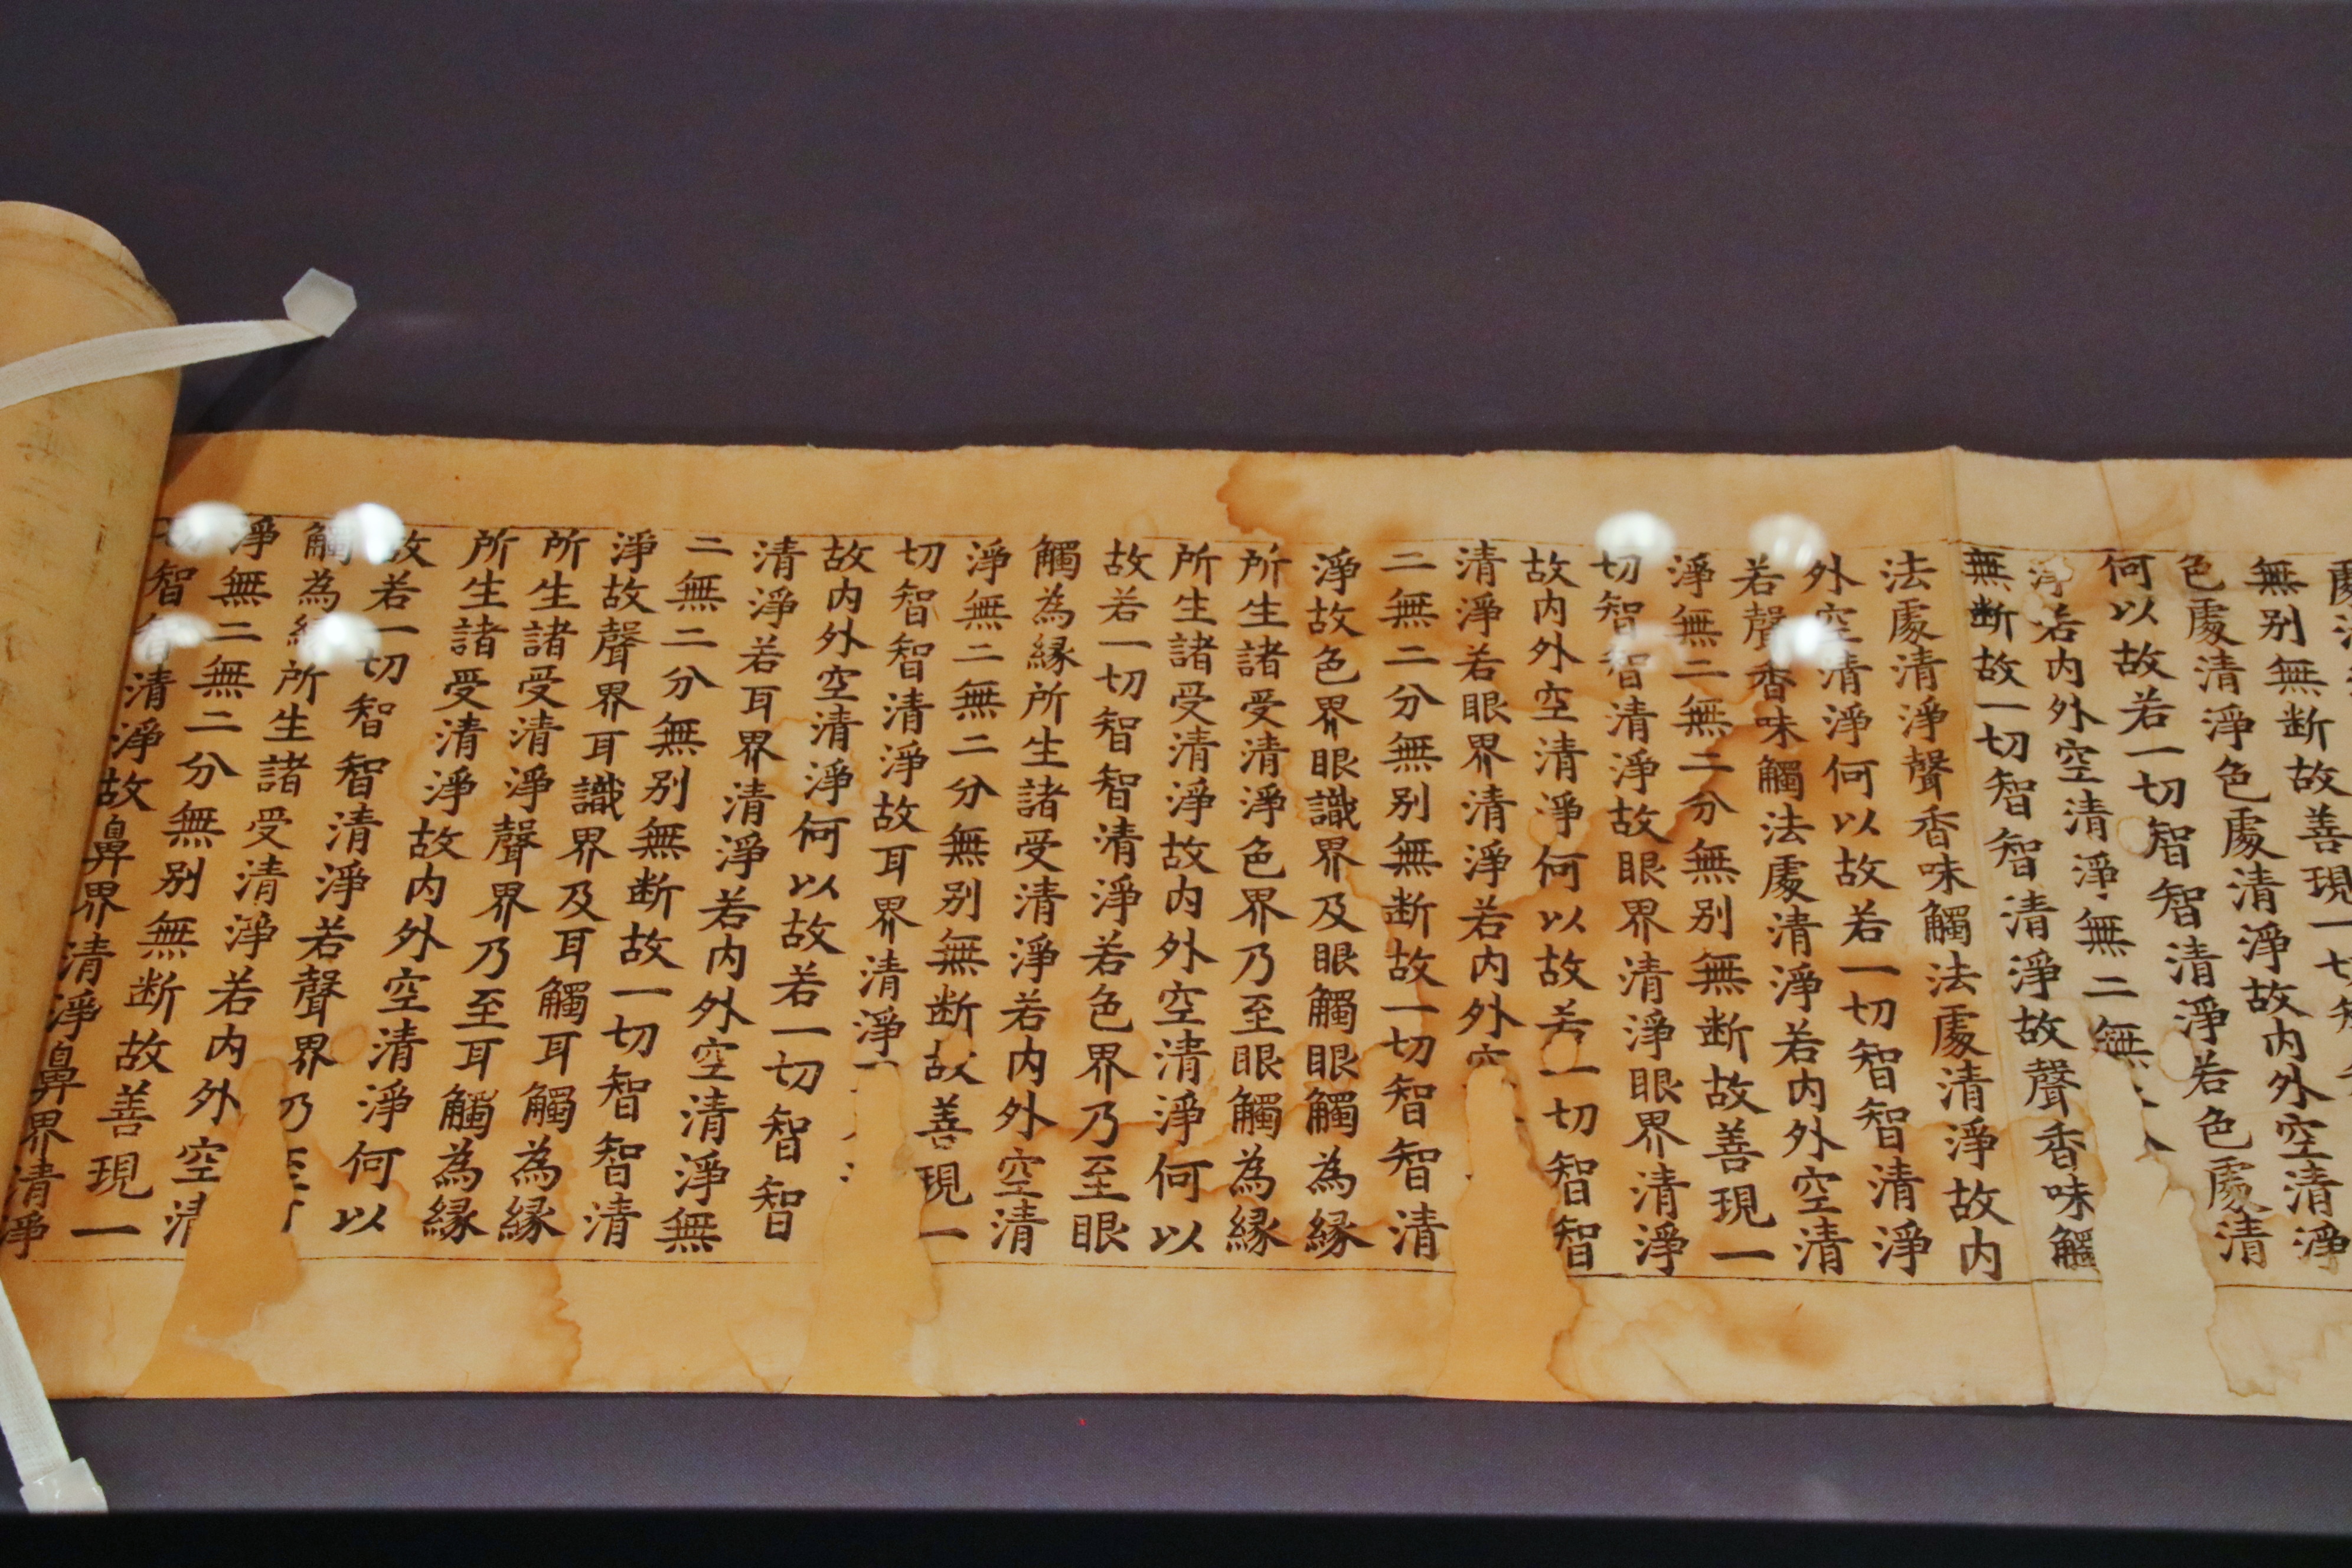 無别無断故善現一切
色處清淨色處清淨故内外空清淨
何以故若一切智智清淨若色處清
淨若内外空清淨無二無
無断故一切智智清淨故聲香味觸
法處清淨聲香味觸法處清淨故内
外空清淨何以故若一切智智清淨
若聲香味觸法處清淨若内外空清
淨無二無二分無别無断故善現一
切智智清淨故眼界清淨眼界清淨
故内外空清淨何以故若一切智智
清淨若眼界清淨若内外空
二無二分無别無断故一切智智清
淨故色界眼識界及眼觸眼觸為縁
所生諸受清淨色界乃至眼觸為縁
所生諸受清淨故内外空清淨何以
故若一切智智清淨若色界乃至眼
觸為縁所生諸受清淨若内外空清
淨無二無二分無别無断故善現一
切智智清淨故耳界清淨
故内外空清淨何以故若一切智智
清淨若耳界清淨若内外空清淨無
二無二分無别無断故一切智智清
淨故聲界耳識界及耳觸耳觸為縁
所生諸受清淨聲界乃至耳觸為縁
所生諸受清淨故内外空清淨何以
故若一切智智清淨若聲界乃至
觸為縁所生諸受清淨若内外空清
淨無二無二分無别無断故善現一
切智智清淨故鼻界清淨鼻界清淨